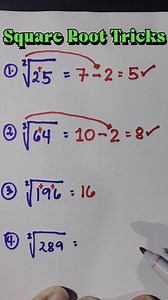 Square Root Tricks
1. ²√25 = 7 - 2 = 5 ✓
2. ²√64 = 10 - 2 = 8 ✓
3. ²√196 = 16
4. ²√289 =